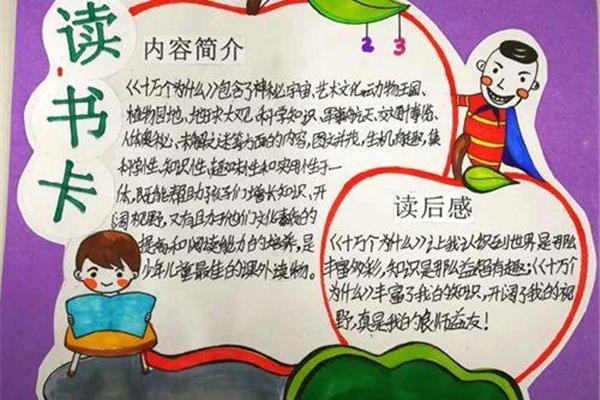 读书卡
内容简介
2 3
《十万个为什么》包含了神秘宇宙、艺术文化、动物王国、
植物园地、地球大观、科学知识、军事航天、交通博览、
人体奥秘、未解之迷等方面的内容,图文并茂,生机有趣,集
科学性、知识性、趣味性和实用性于一
体,既能帮助孩子们增长知识、开
阔视野,又有助于他们文化素质的
提高和阅读能力的培养,是
少年儿童最佳的课外读物。
读后感
《十万个为什么》让我认识到世界是那么
丰富多彩,知识是那么益智有趣;《十万个
为什么》丰富了我的知识,开阔了我的视
野,真是我的良师益友!